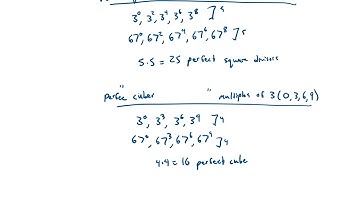 3⁰, 3², 3⁴, 3⁶, 3⁸ ] 5
67⁰, 67², 67⁴, 67⁶, 67⁸ ] 5
5·5 = 25 perfect square divisors
"perfec cubes" multiples of 3 (0,3,6,9)
3⁰, 3³, 3⁶, 3⁹ ] 4
67⁰, 67³, 67⁶, 67⁹ ] 4
4·4 = 16 perfect cube